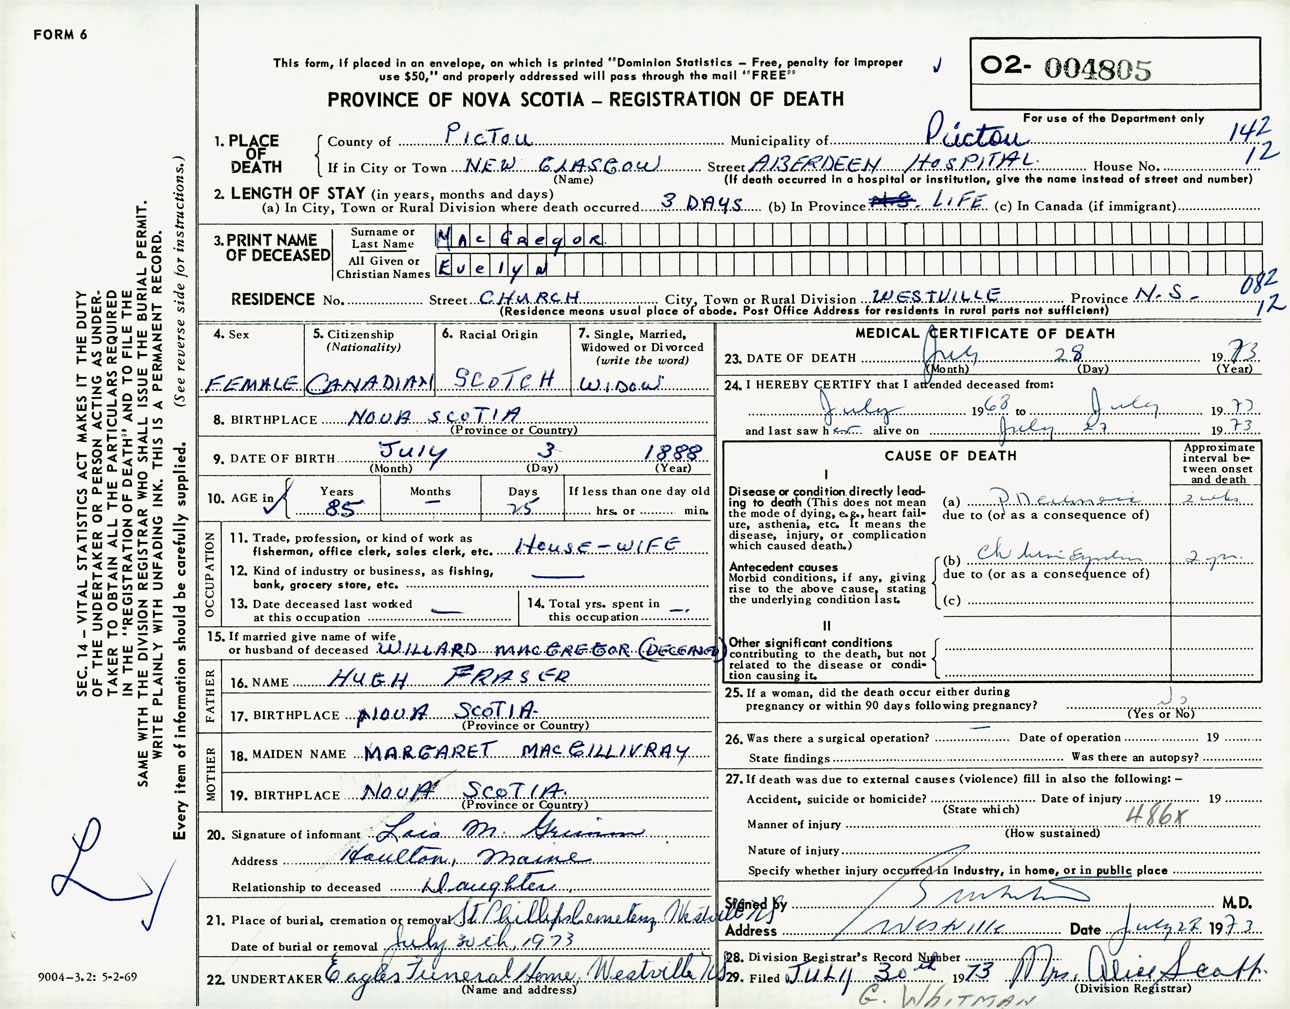 FORM 6
This form, if placed in an envelope, on which is printed "Dominion Statistics – Free, penalty for improper
use $50," and properly addressed will pass through the mail "FREE"
O2- 004805
PROVINCE OF NOVA SCOTIA – REGISTRATION OF DEATH
For use of the Department only
1. PLACE OF DEATH
County of PICTOU Municipality of Pictou 142
If in City or Town NEW GLASGOW Street ABERDEEN HOSPITAL House No. 12
(Name) (If death occurred in a hospital or institution, give the name instead of street and number)
2. LENGTH OF STAY (in years, months and days)
(a) In City, Town or Rural Division where death occurred 3 DAYS (b) In Province N.S. LIFE (c) In Canada (if immigrant)
3. PRINT NAME OF DECEASED
Surname or Last Name MacGregor
All Given or Christian Names Evelyn
RESIDENCE No. Street CHURCH City, Town or Rural Division WESTVILLE Province N.S. 082
(Residence means usual place of abode. Post Office Address for residents in rural parts not sufficient) 12
4. Sex
FEMALE
5. Citizenship
(Nationality)
CANADIAN
6. Racial Origin
SCOTCH
7. Single, Married,
Widowed or Divorced
(write the word)
WIDOW
8. BIRTHPLACE NOVA SCOTIA
(Province or Country)
9. DATE OF BIRTH July 3 1888
(Month) (Day) (Year)
10. AGE in Years Months Days If less than one day old
85 – 25 hrs. or min.
OCCUPATION
11. Trade, profession, or kind of work as
fisherman, office clerk, sales clerk, etc. HOUSE-WIFE
12. Kind of industry or business, as fishing,
bank, grocery store, etc. —
13. Date deceased last worked
at this occupation —
14. Total yrs. spent in
this occupation —
15. If married give name of wife
or husband of deceased WILLARD MACGREGOR (DECEASED)
FATHER
16. NAME HUGH FRASER
17. BIRTHPLACE NOVA SCOTIA
(Province or Country)
MOTHER
18. MAIDEN NAME MARGARET MACGILLIVRAY
19. BIRTHPLACE NOVA SCOTIA.
(Province or Country)
20. Signature of informant Lois M. Grimm
Address Houlton, Maine
Relationship to deceased Daughter
21. Place of burial, cremation or removal St Phillips Cemetery, Westville NS
Date of burial or removal July 30th, 1973
22. UNDERTAKER Eagles Funeral Home, Westville NS
(Name and address)
MEDICAL CERTIFICATE OF DEATH
23. DATE OF DEATH July 28 1973
(Month) (Day) (Year)
24. I HEREBY CERTIFY that I attended deceased from:
July 1968 to July 1973
and last saw her alive on July 27 1973
CAUSE OF DEATH
Approximate interval between onset and death
I
Disease or condition directly lead-
ing to death (This does not mean
the mode of dying, e.g., heart fail-
ure, asthenia, etc. It means the
disease, injury, or complication
which caused death.)
(a) Pneumonia 2 wks
due to (or as a consequence of)
Antecedent causes
Morbid conditions, if any, giving
rise to the above cause, stating
the underlying condition last.
(b) Ch 2 yrs.
due to (or as a consequence of)
(c)
II
Other significant conditions
contributing to the death, but not
related to the disease or condi-
tion causing it.
25. If a woman, did the death occur either during
pregnancy or within 90 days following pregnancy? No
(Yes or No)
26. Was there a surgical operation? — Date of operation 19
State findings Was there an autopsy?
27. If death was due to external causes (violence) fill in also the following: –
Accident, suicide or homicide? Date of injury 19
(State which)
Manner of injury 486X
(How sustained)
Nature of injury
Specify whether injury occurred in Industry, in home, or in public place
Signed by M.D.
Address Westville Date July 28 1973
28. Division Registrar's Record Number
29. Filed JULY 30th 1973 Mrs. Alice Scott.
(Division Registrar)
G. WHITMAN
SEC. 14 – VITAL STATISTICS ACT MAKES IT THE DUTY
OF THE UNDERTAKER OR PERSON ACTING AS UNDER-
TAKER TO OBTAIN ALL THE PARTICULARS REQUIRED
IN THE "REGISTRATION OF DEATH" AND TO FILE THE
SAME WITH THE DIVISION REGISTRAR WHO SHALL ISSUE THE BURIAL PERMIT.
WRITE PLAINLY WITH UNFADING INK. THIS IS A PERMANENT RECORD.
Every item of information should be carefully supplied. (See reverse side for instructions.)
9004-3.2: 5-2-69